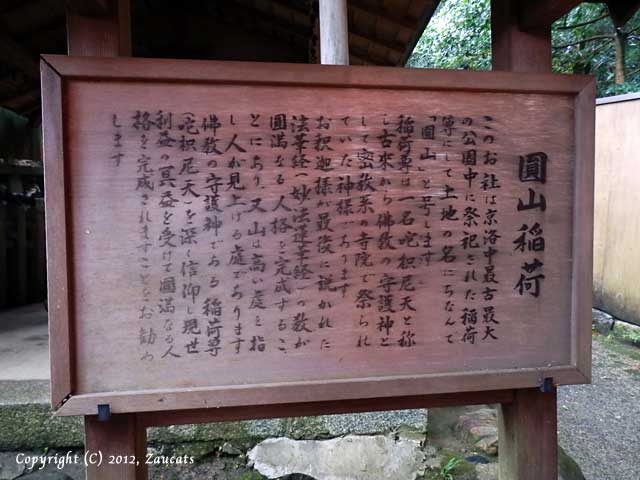 圓山稲荷
このお社は京洛中最古最大
の公園中に祭祀された稲荷
尊にして土地の名にちなんで
「圓山」と号します
稲荷尊は一名咜枳尼天と称
し古来から佛教の守護神と
して密教系の寺院で祭られ
ていた神様であります
お釈迦様が最後に説かれた
法華経(妙法蓮華経)の教が
圓満なる人格を完成するこ
とにあり、又山は高い處を指
し人が見上げる處であります
佛教の守護神である稲荷尊
(咜枳尼天)を深く信仰し現世
利益の冥益を受けて圓満なる人
格を完成されますことをお勧め
します
Copyright (C) 2012, Zaucats